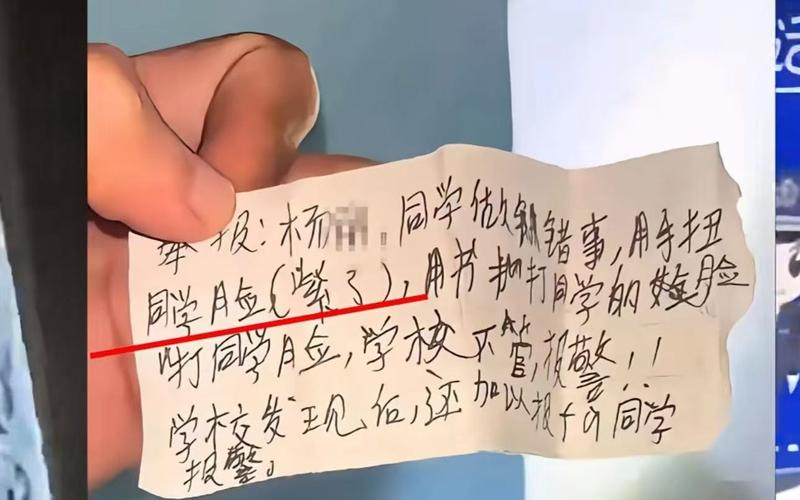 举报:杨,同学做错事,用手扭
同学脸(紫了),用书抽打同学的脸
打同学脸,学校不管,报警!!
学校发现后,还加以报的同学
报警。